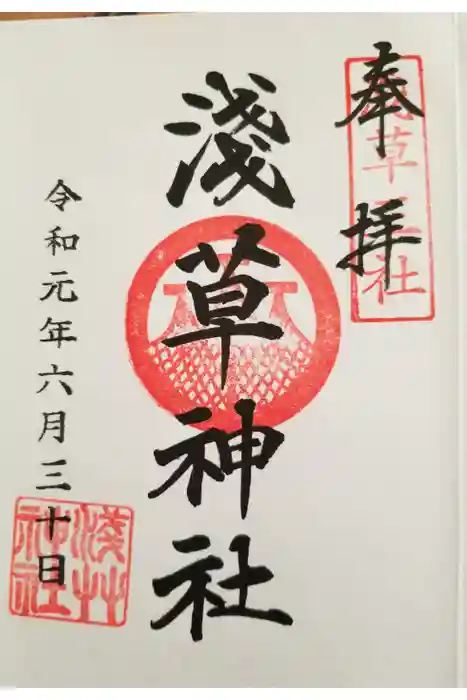 奉拝
浅草三社
淺草神社
令和元年六月三十日
淺草神社